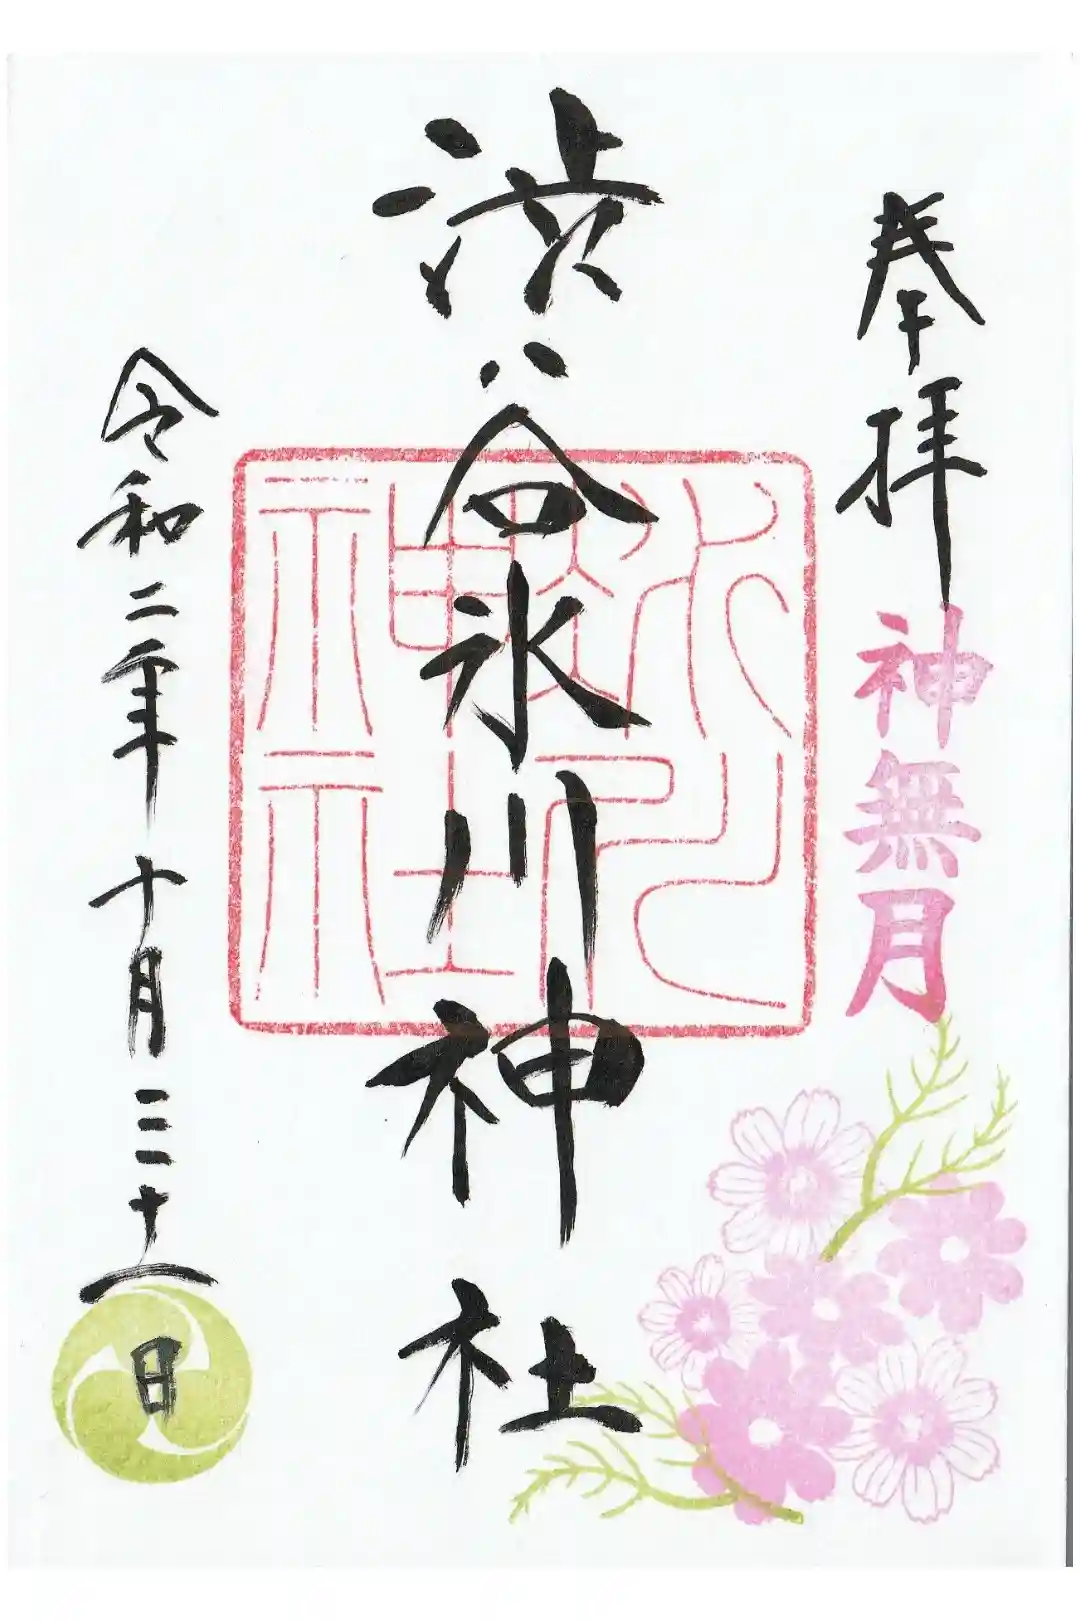 奉拝
神無月
渋谷氷川神社
令和二年十月三十一日